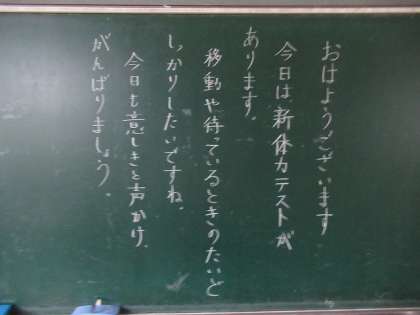 おはようございます
今日は新体力テストが
あります。
移動や待っているときのたいど
しっかりしたいですね。
今日も意しきと声かけ、
がんばりましょう。